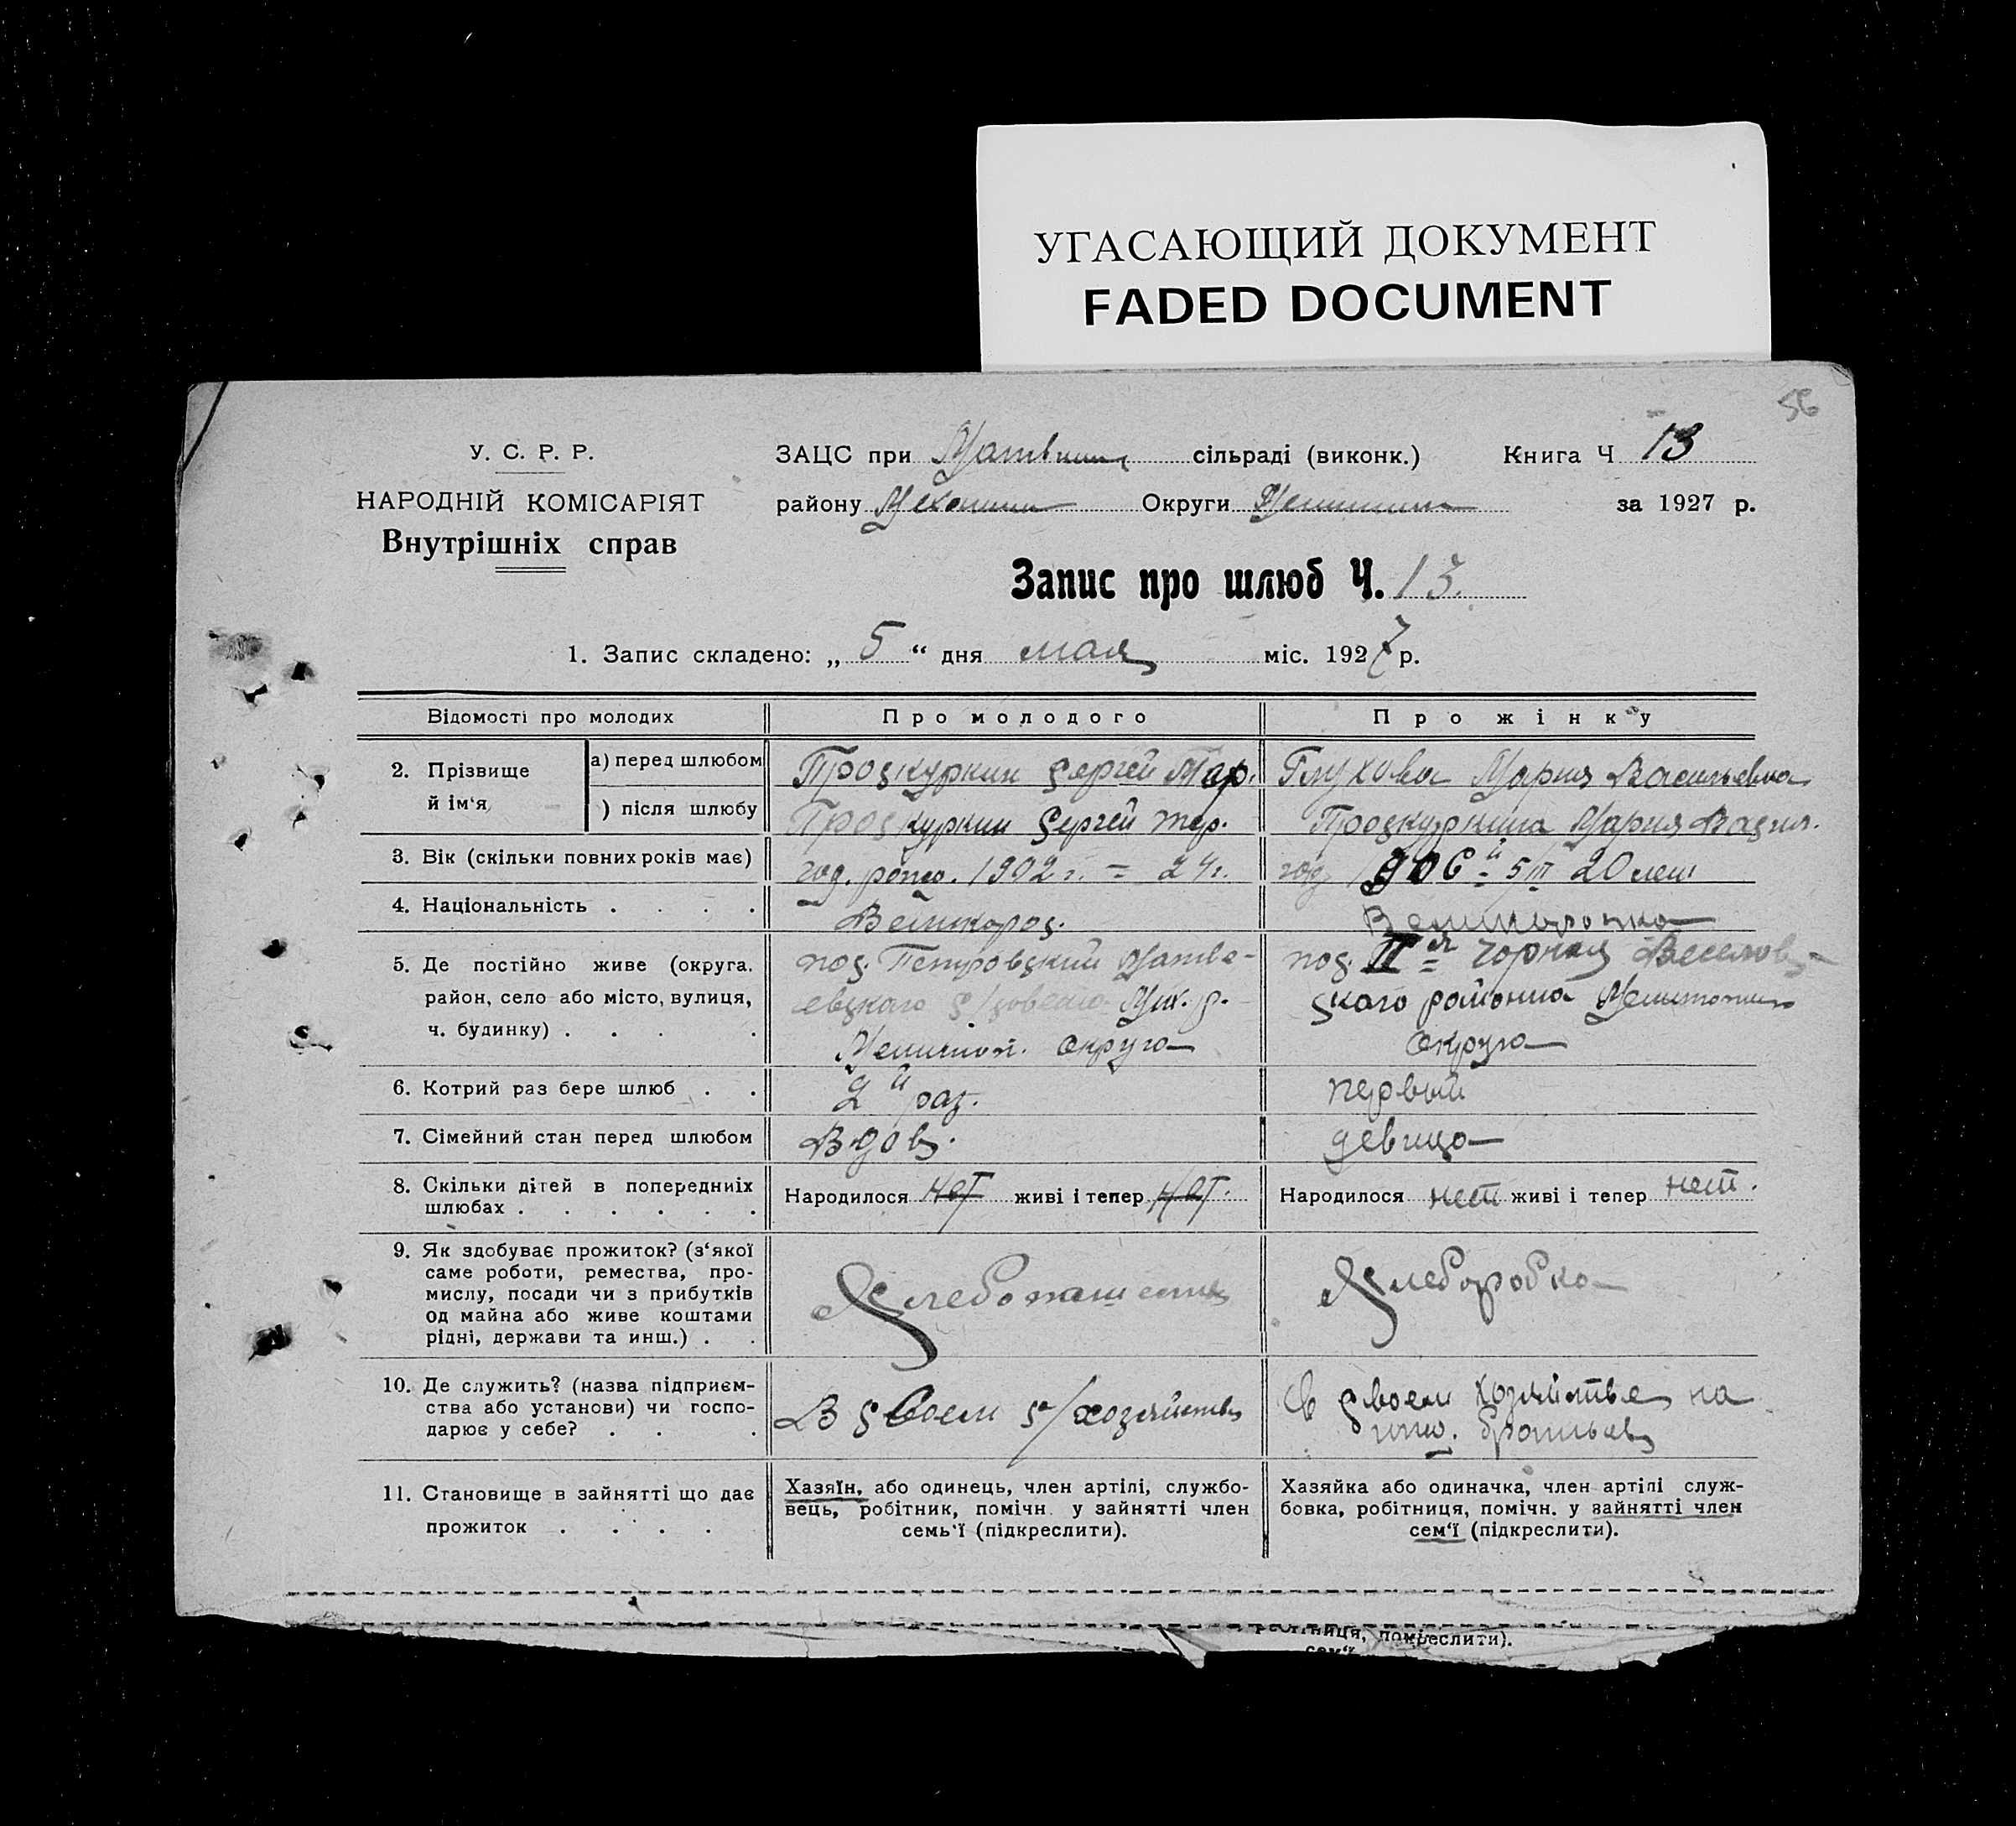 УГАСАЮЩИЙ ДОКУМЕНТ
FADED DOCUMENT
56
У. С. Р. Р.
НАРОДНІЙ КОМІСАРІЯТ
Внутрішніх справ
ЗАЦС при сільраді (виконк.) Книга Ч 13
району Округи за 1927 р.
Запис про шлюб Ч. 13.
1. Запис складено: „ 5 “ дня мая міс. 1927 р.
Відомості про молодих
Про молодого
Про жінку
2. Прізвище й ім‘я
а) перед шлюбом
Проскуркин Сергей Мар.
Глухова Мария Васильевна
) після шлюбу
Проскуркин Сергей
Проскуркина Мария Васил.
3. Вік (скільки повних років має)
год. рожд. 1902 г. = 24 г.
год 1906 й 5/III 20 лет
4. Національність . . . .
Великорос.
Великороска
5. Де постійно живе (округа.
район, село або місто, вулиця,
ч. будинку) . . . .
пос. Петровский Матве-
евского с/совета Мих. р.
Мелитоп. округа
пос. II я Чорная Веселов-
ского района Мелитопол
округа
6. Котрий раз бере шлюб . .
2 й раз.
первый
7. Сімейний стан перед шлюбом
Вдов.
девица
8. Скільки дітей в попередниіх
шлюбах . . . . . .
Народилося нет живі і тепер нет.
Народилося нет живі і тепер нет.
9. Як здобуває прожиток? (з‘якої
саме роботи, ремества, про-
мислу, посади чи з прибутків
од майна або живе коштами
рідні, держави та инш.) . .
Хлебопашец
Хлеборобка
10. Де служить? (назва підприєм-
ства або установи) чи госпо-
дарює у себе? . . .
В своем с/хозяйстве
В своем хозяйстве на
ижд. братьев
11. Становище в зайнятті що дає
прожиток . . . .
Хазяїн, або одинець, член артілі, службо-
вець, робітник, помічн. у зайнятті член
семь‘ї (підкреслити).
Хазяйка або одиначка, член артілі служ-
бовка, робітниця, помічн. у зайнятті член
сем‘ї (підкреслити).